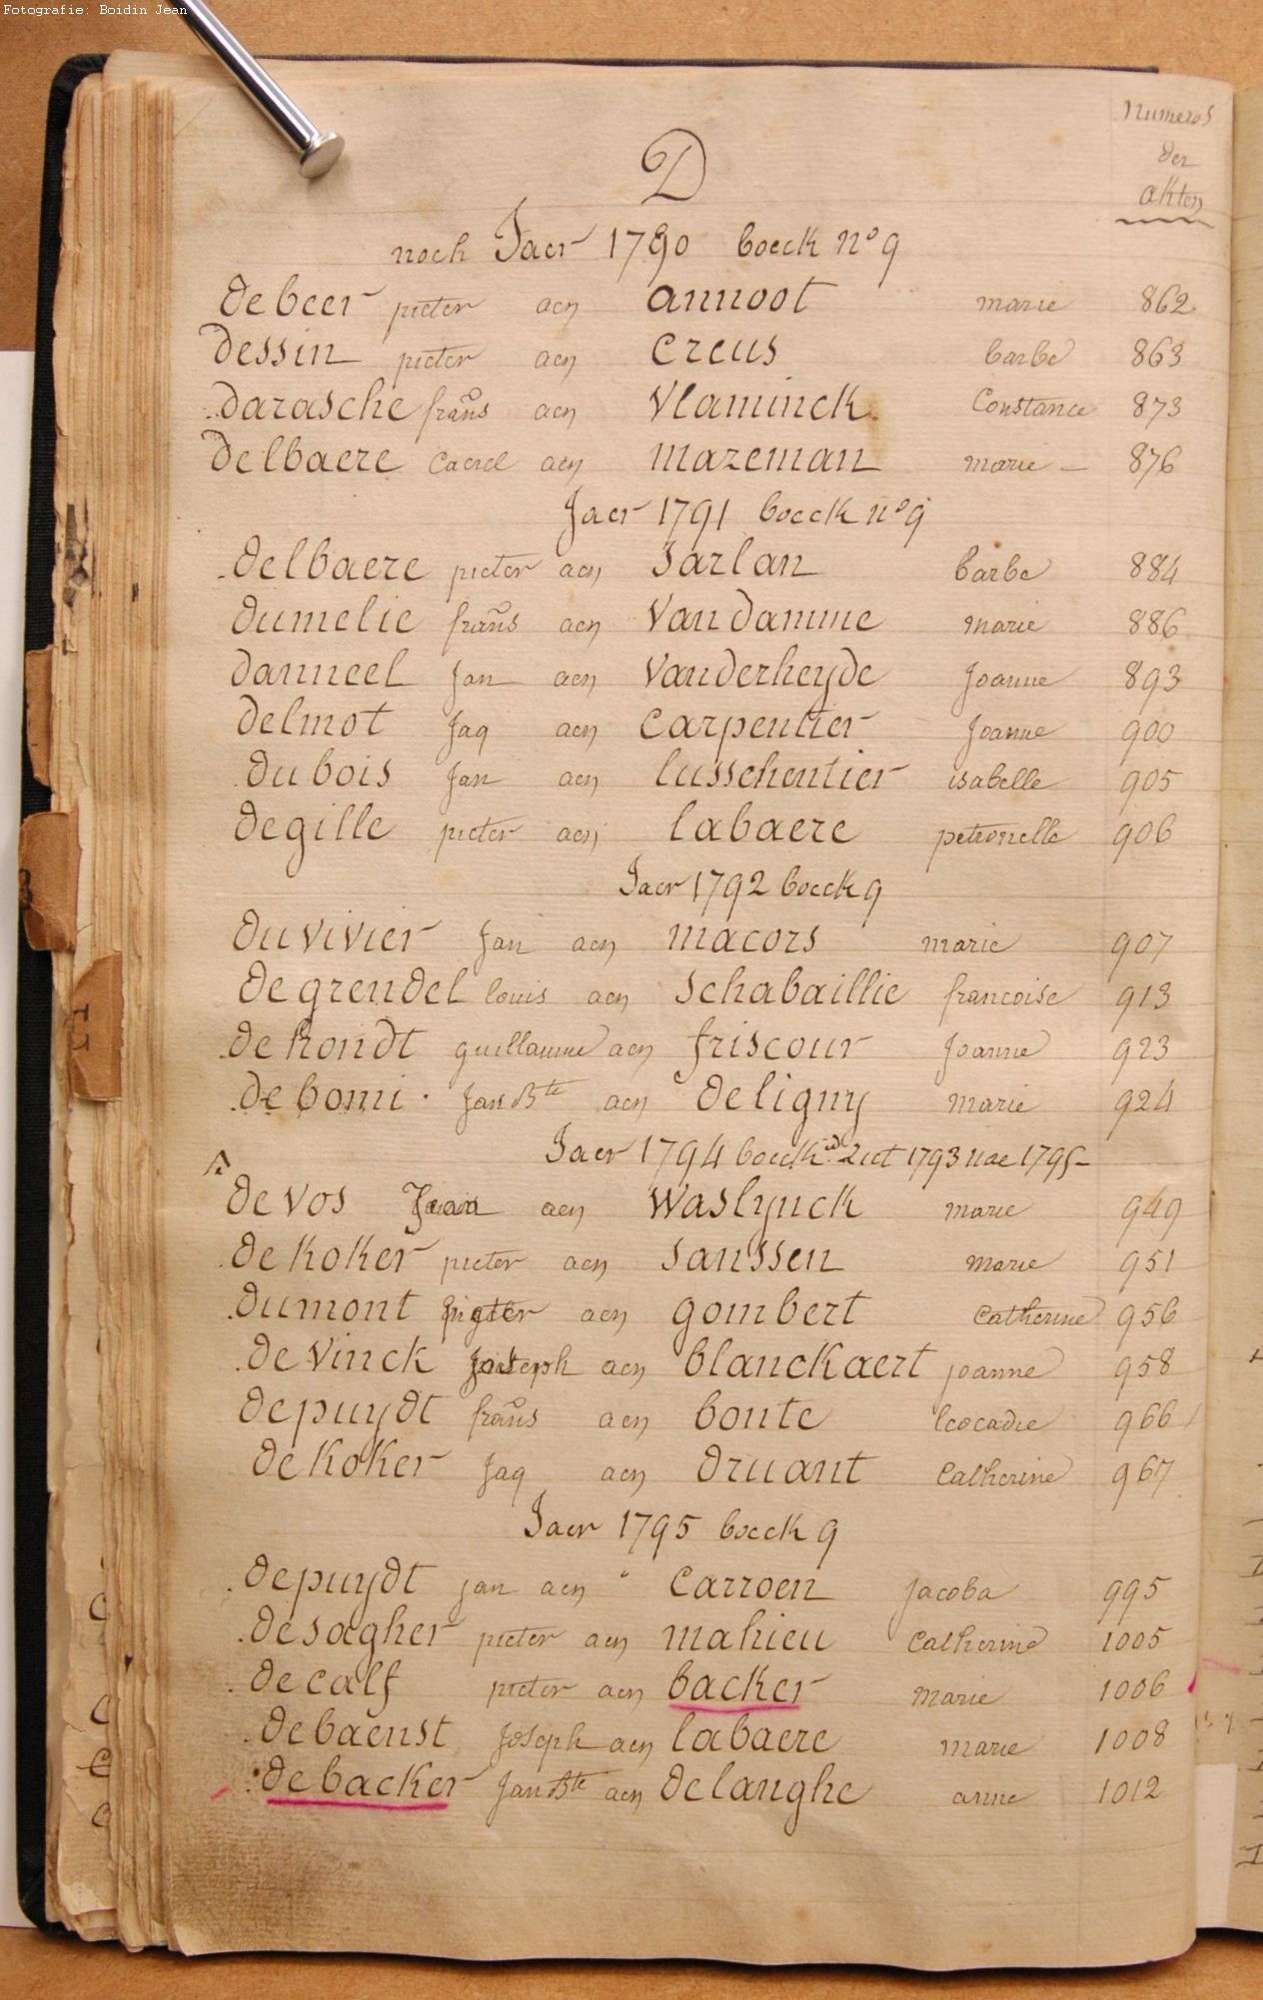 Fotografie: Boidin Jean
Numeros
der
akten
D
noch Jaer 1790 boeck n° 9
de beer pieter aen annoot marie 862
dessin pieter aen creus barbe 863
darasche frans aen vlaminck Constance 873
delbaere Caerel aen mazeman marie 876
Jaer 1791 boeck n° 9
delbaere pieter aen sarlan barbe 884
dumelie frans aen van damme marie 886
danneel Jan aen vanderheyde Joanne 893
delmot Jaq aen carpentier Joanne 900
du bois Jan aen lusschentier isabelle 905
degille pieter aen labaere petronelle 906
Jaer 1792 boeck 9
du vivier Jan aen macors marie 907
de grendel louis aen schabaillie francoise 913
de hondt guillaume aen friscour Joanne 923
de bomi Jan Bte aen de ligny marie 924
Jaer 1794 boeck 2 uct 1793 nae 1795
de vos Jean aen waslynck marie 949
de koker pieter aen sanssen marie 951
dumont pieter aen gombert Catherine 956
de vinck Joseph aen blanckaert joanne 958
depuydt frans aen bonte leocadie 966
de koker Jaq aen druant Catherine 967
Jaer 1795 boeck 9
depuydt jan aen carroen Jacoba 995
desagher pieter aen mahieu Catherine 1005
de calf pieter aen backer marie 1006
debaenst Joseph aen labaere marie 1008
de backer Jan Bte aen delanghe anne 1012